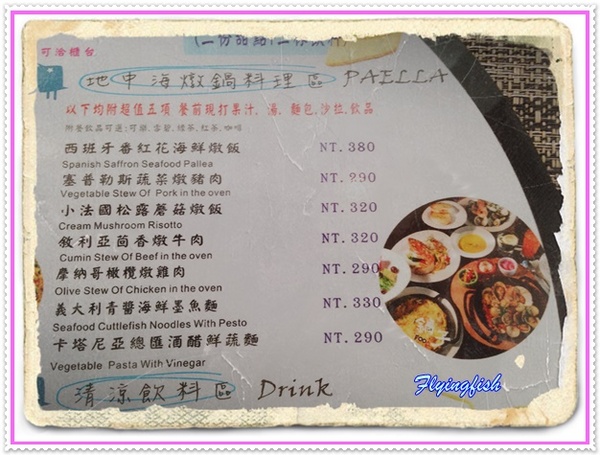 可洽櫃台
地中海燉鍋料理區 PAELLA
以下均附超值五項 餐前現打果汁, 湯, 麵包,沙拉,飲品
附餐飲品可選:可樂,雪碧,綠茶,紅茶,咖啡
西班牙番紅花海鮮燉飯 NT.380
Spanish Saffron Seafood Pallea
塞普勒斯蔬菜燉豬肉 NT.290
Vegetable Stew Of Pork in the oven
小法國松露蘑菇燉飯 NT.320
Cream Mushroom Risotto
敘利亞茴香燉牛肉 NT.320
Cumin Stew Of Beef in the oven
摩納哥橄欖燉雞肉 NT.290
Olive Stew Of Chicken in the oven
義大利青醬海鮮墨魚麵 NT.330
Seafood Cuttlefish Noodles With Pesto
卡塔尼亞總匯酒醋鮮蔬麵 NT.290
Vegetable Pasta With Vinegar
清涼飲料區 Drink
Flyingfish